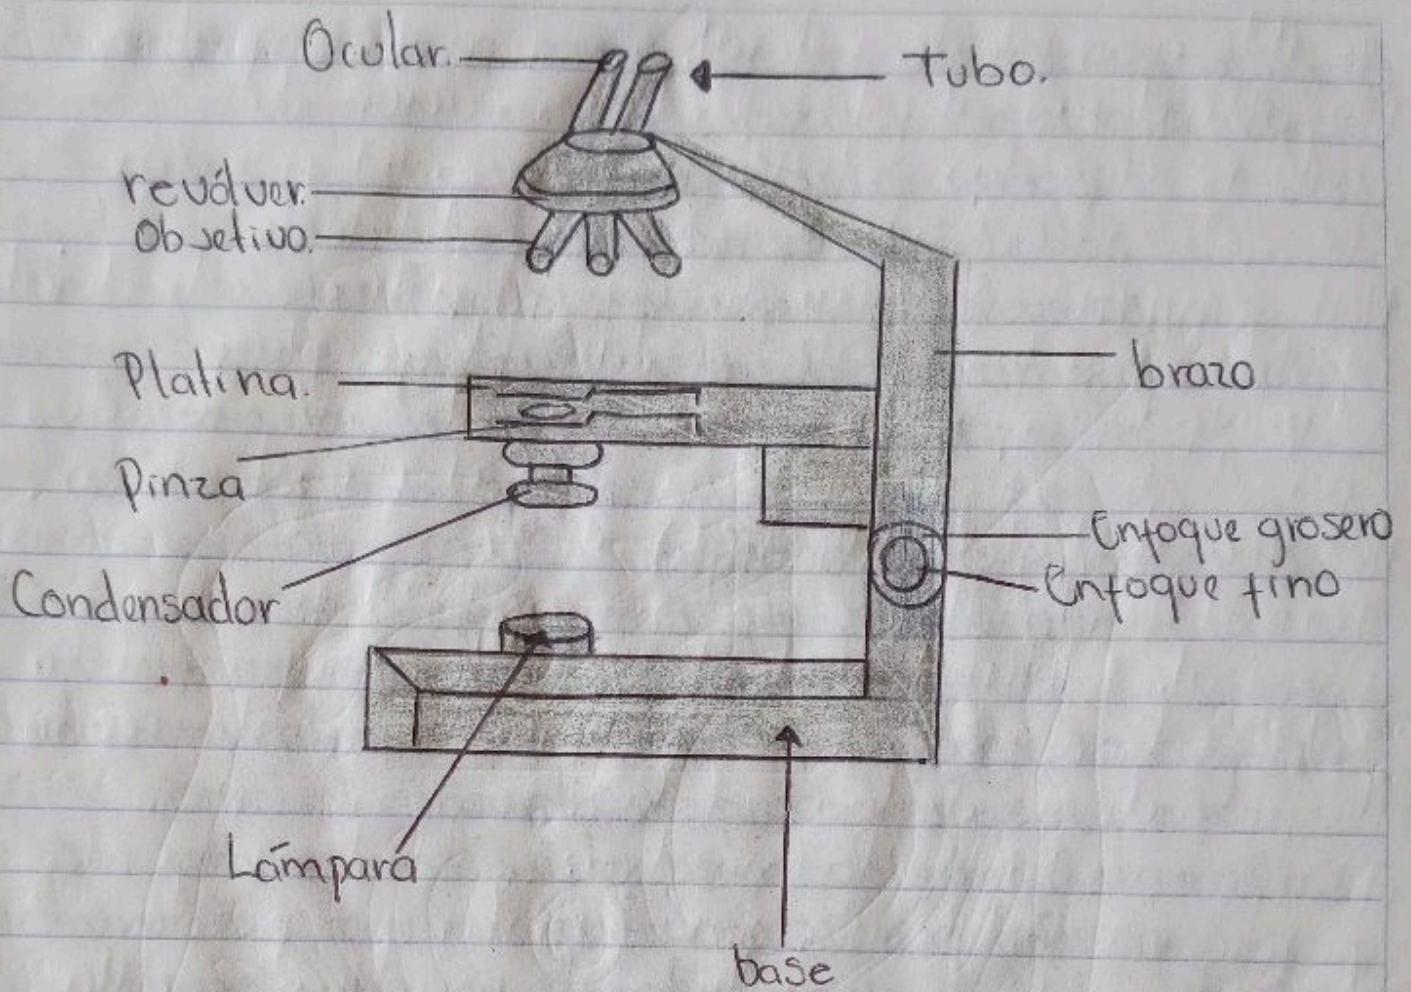 Ocular.
Tubo.
revólver.
Objetivo.
Platina.
brazo
Pinza
Enfoque grosero
Enfoque fino
Condensador
Lámpara
base